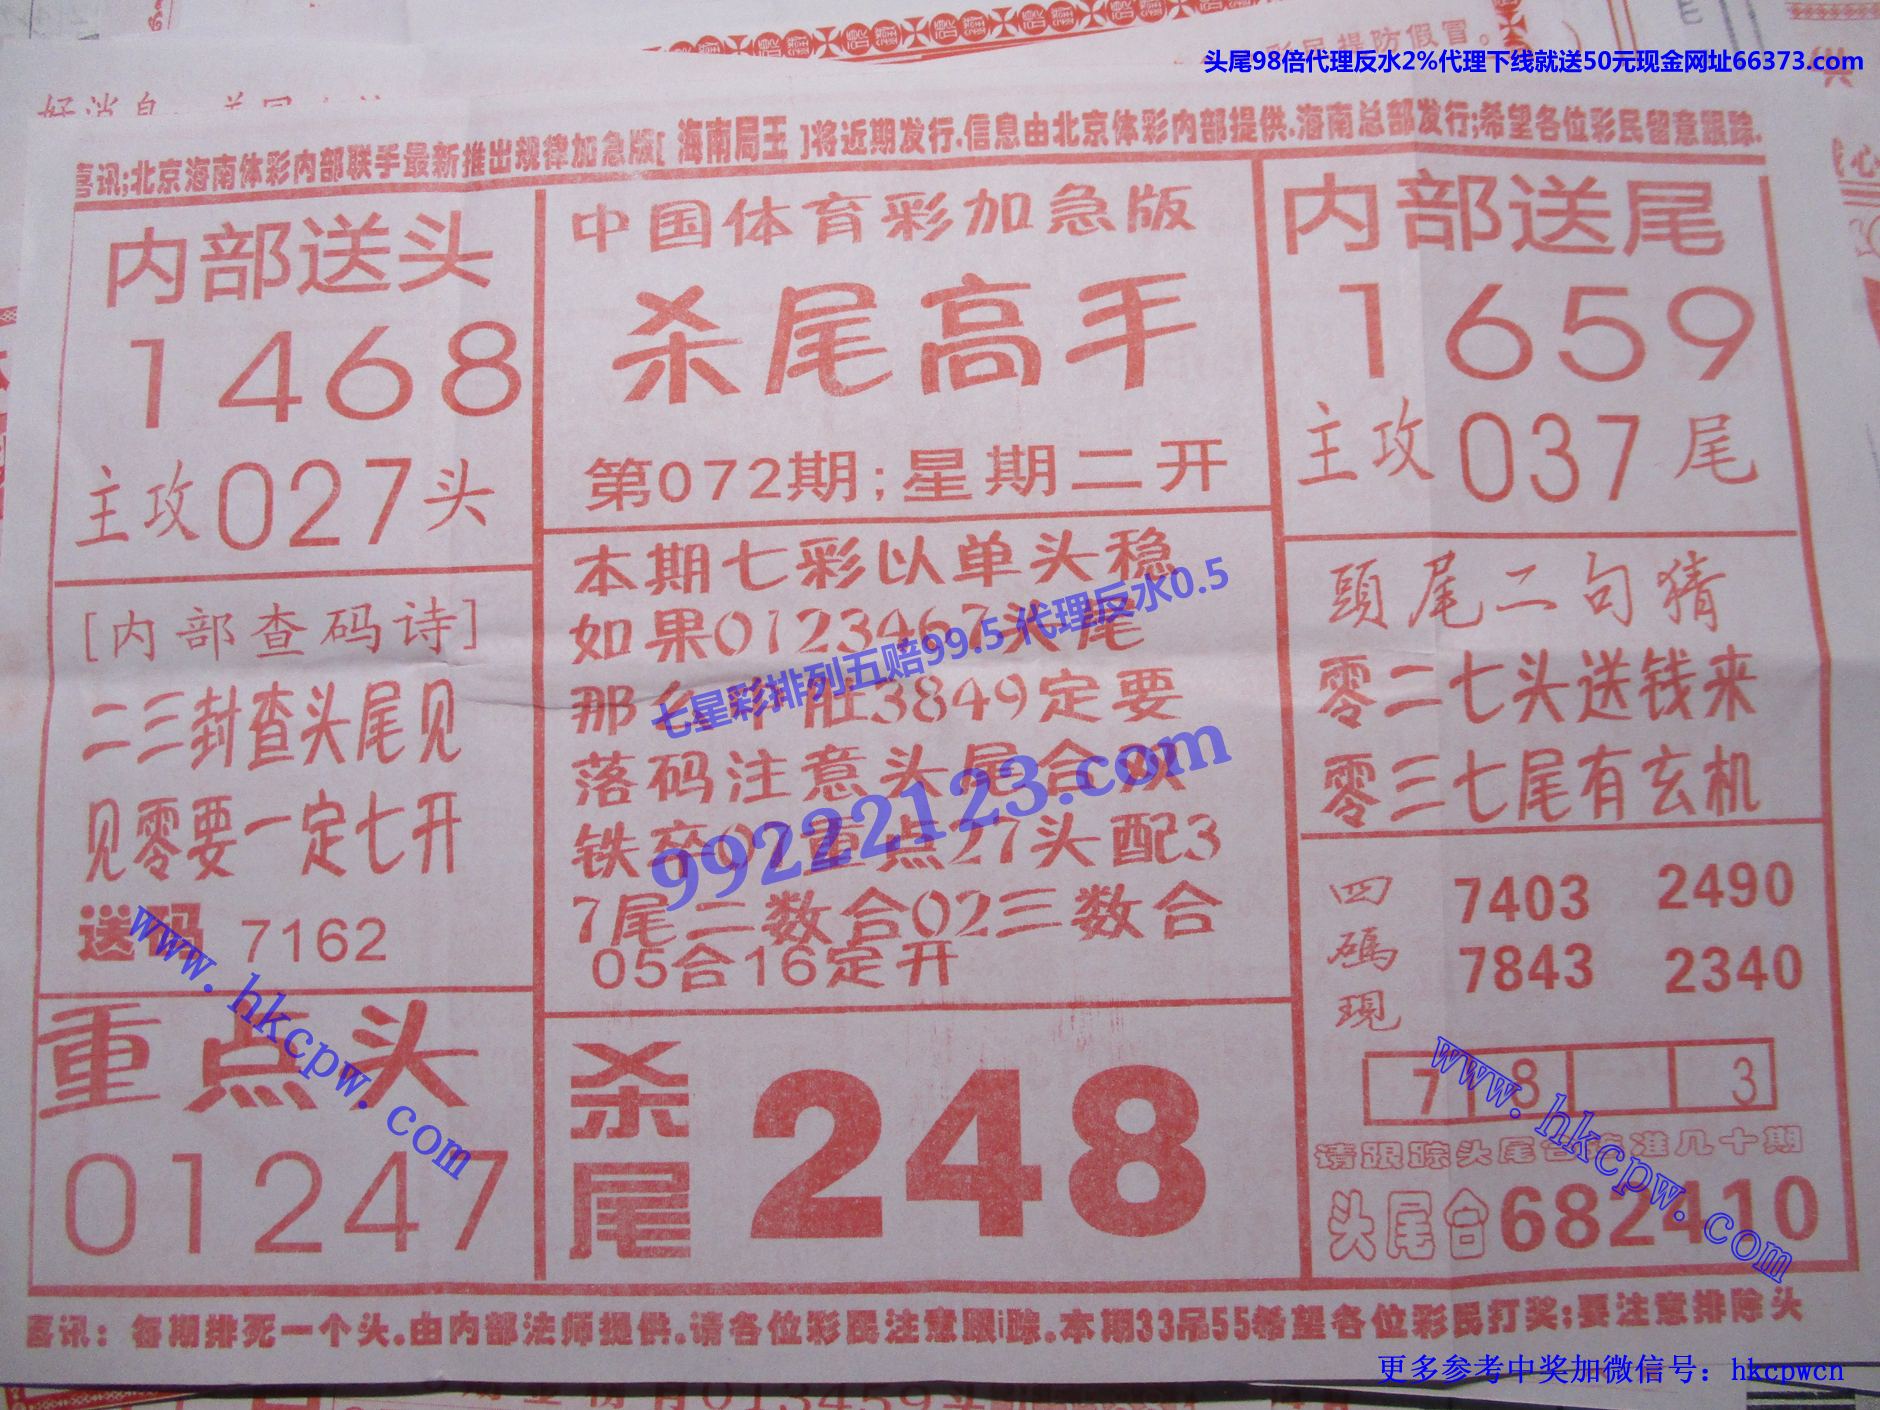 彩民提防假冒。
头尾98倍代理反水2%代理下线就送50元现金网址66373.com
喜讯;北京海南体彩内部联手最新推出规律加急版[ 海南局王 ]将近期发行.信息由北京体彩内部提供.海南总部发行;希望各位彩民留意跟踪.
内部送头
1468
主攻027头
中国体育彩加急版
杀尾高手
第072期;星期二开
内部送尾
1659
主攻037尾
[内部查码诗]
二三封查头尾见
见零要一定七开
送码 7162
本期七彩以单头稳
如果0123467头尾
那么单胆3849定要
落码注意头尾合双
铁卒07重点27头配3
7尾二数合02三数合
05合16定开
七星彩排列五赔99.5 代理反水0.5
99222123.com
頭尾二句猜
零二七头送钱来
零三七尾有玄机
四碼現
7403 2490
7843 2340
7 8 3
请跟踪头尾合 准几十期
头尾合682410
重点头
01247
杀尾
248
www.hkcpw.com
www.hkcpw.com
喜讯：每期排死一个头.由内部法师提供.请各位彩民注意跟踪.本期33吊55希望各位彩民打奖;要注意排除头
更多参考中奖加微信号：hkcpwcn